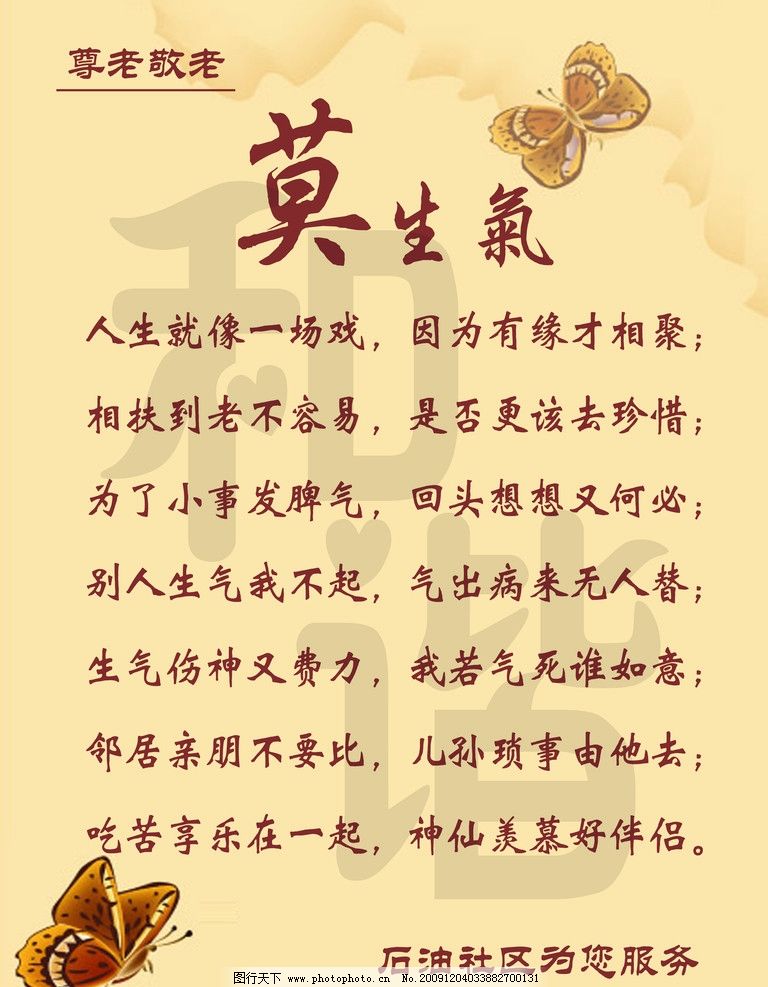 尊老敬老
莫生氣
人生就像一场戏，因为有缘才相聚；
相扶到老不容易，是否更该去珍惜；
为了小事发脾气，回头想想又何必；
别人生气我不起，气出病来无人替；
生气伤神又费力，我若气死谁如意；
邻居亲朋不要比，儿孙琐事由他去；
吃苦享乐在一起，神仙羡慕好伴侣。
和谐
石油社区为您服务
图行天下 www.photophoto.cn No.20091204033882700131